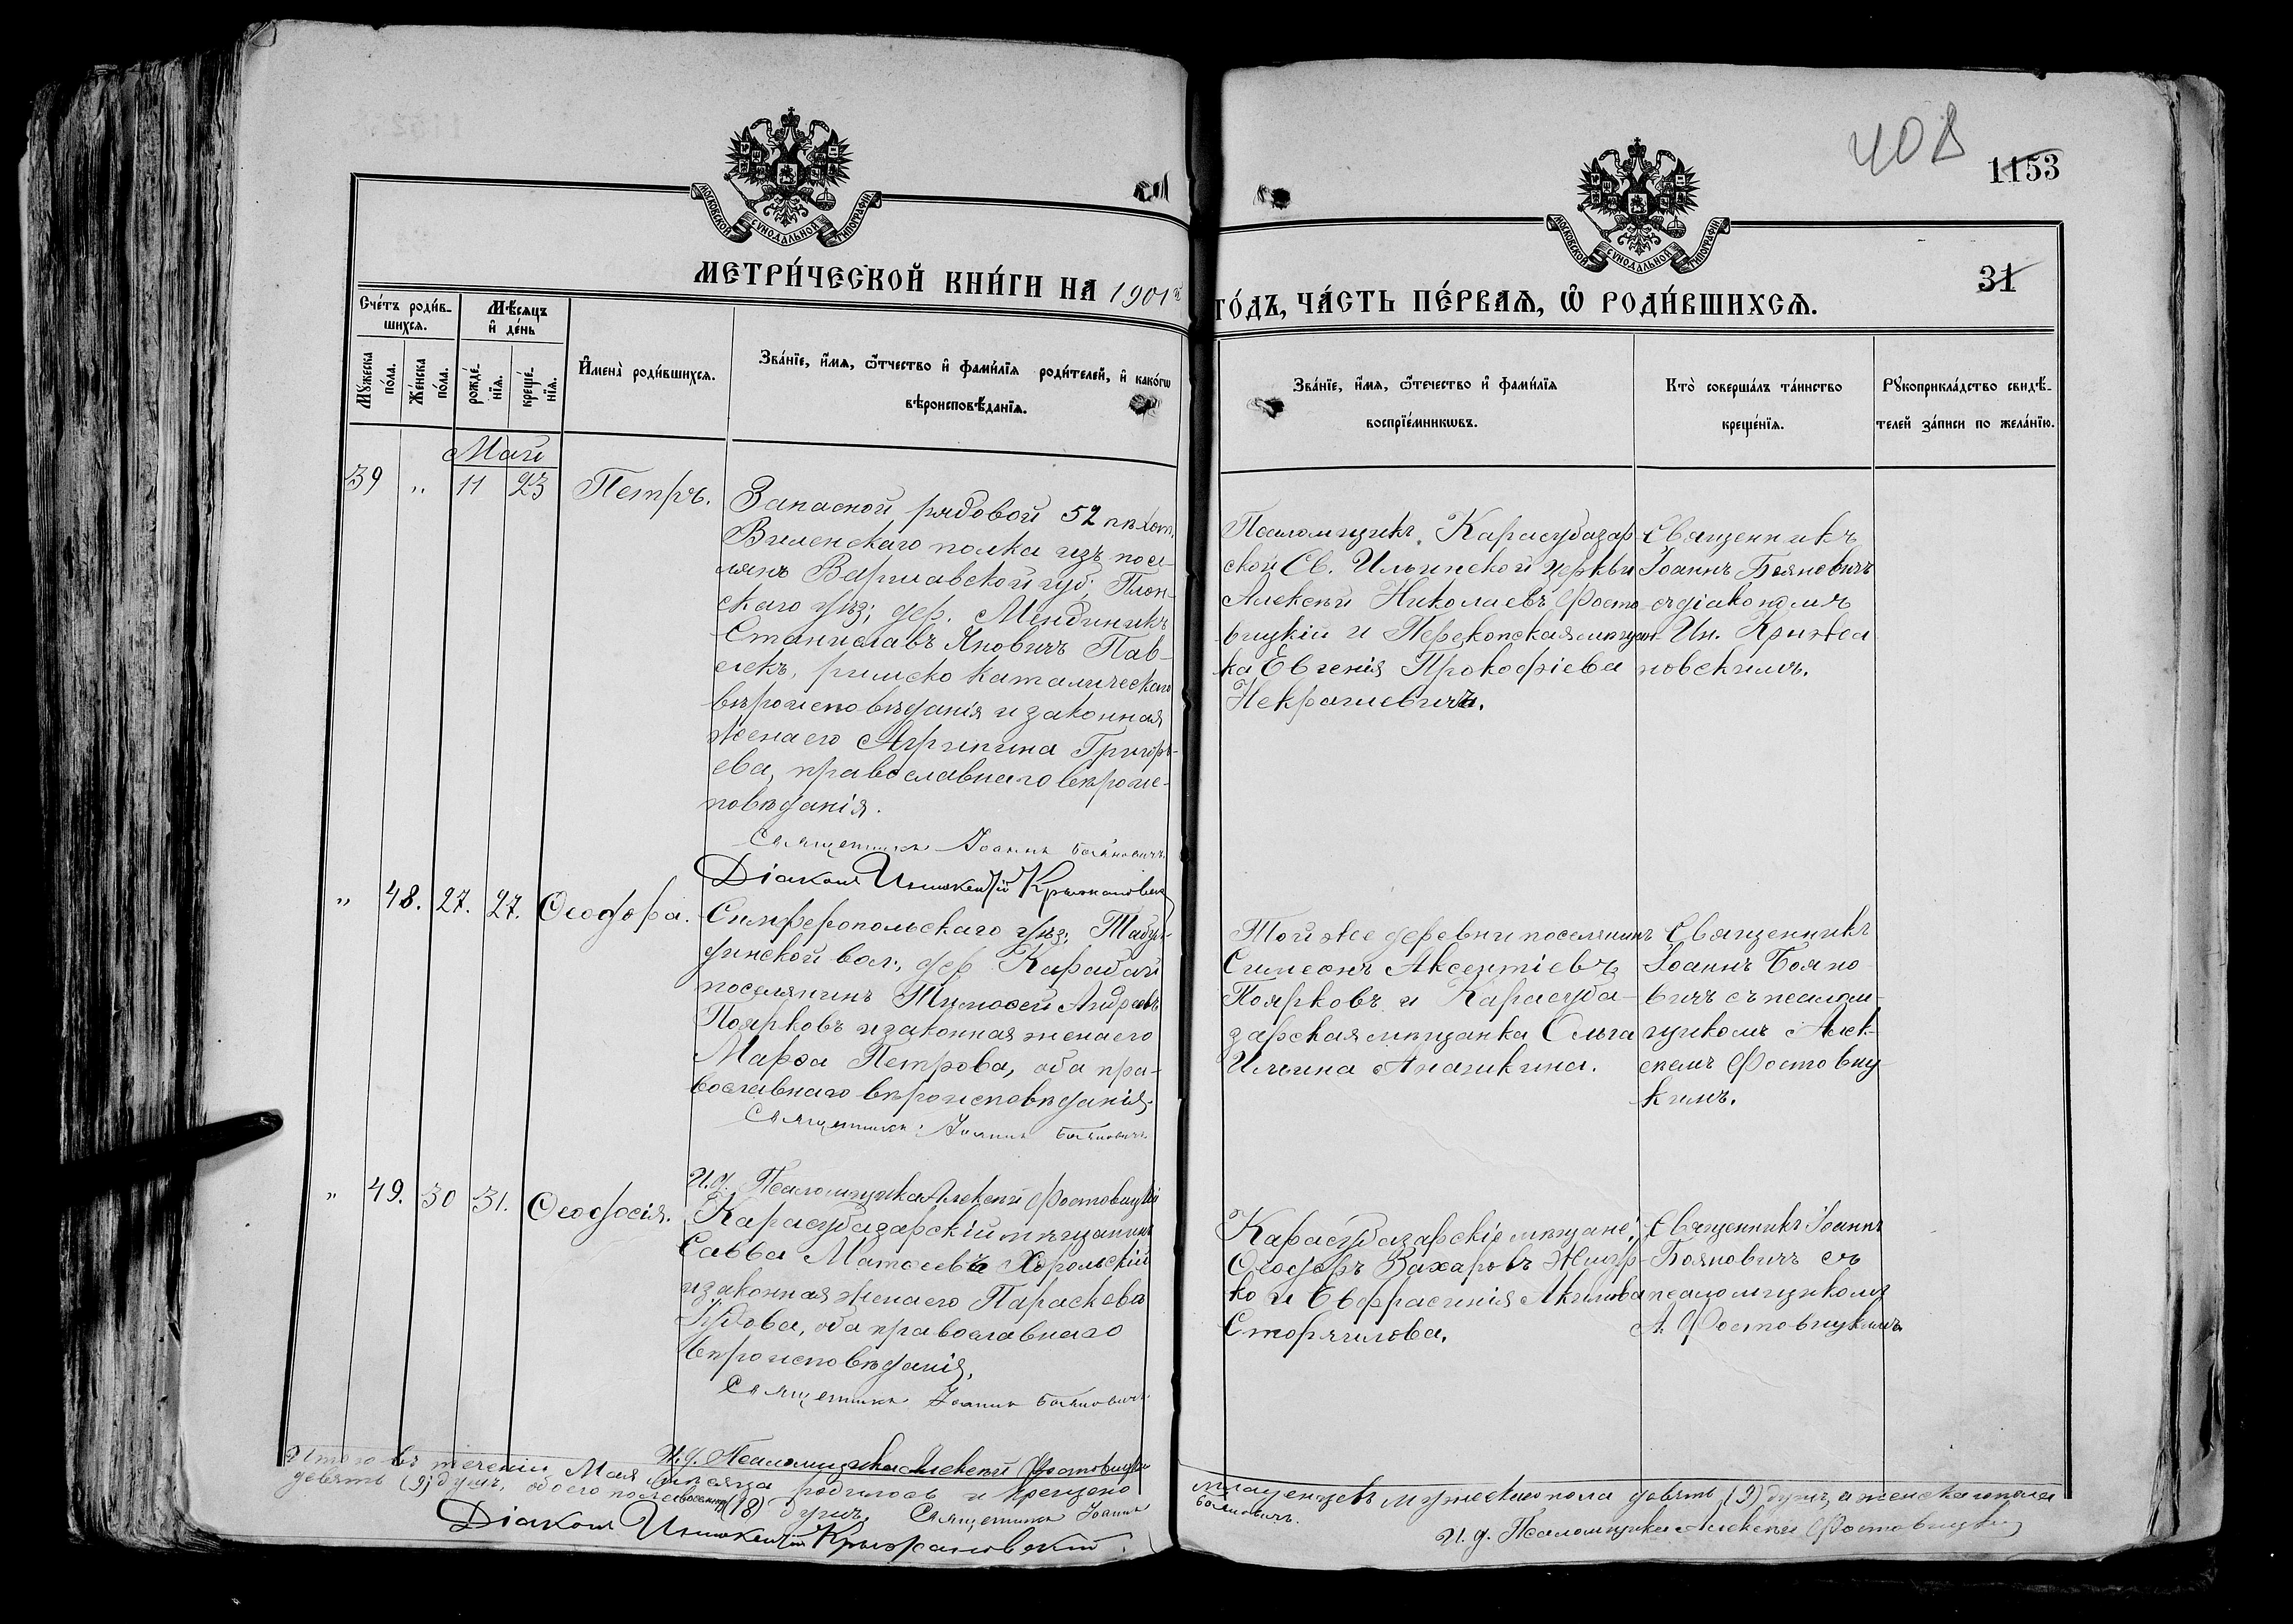 408
1153
МОСКОВСКОЙ СѴНОДАЛЬНОЙ ТИПОГРАФІИ
МОСКОВСКОЙ СѴНОДАЛЬНОЙ ТИПОГРАФІИ
31
МЕТРИ́ЧЕСКОЙ КНИ́ГИ НА 1901й
ГО́ДЪ, ЧА́СТЬ ПЕ́РВАѦ, Ѡ҆ РОДИ́ВШИХСѦ.
Сче́тъ роди́в-
шихсѧ.
Мꙋ́жеска
по́ла.
Же́нска
по́ла.
Мѣ́сѧцъ
и҆ де́нь
рожде́-
нїѧ.
креще́-
нїѧ.
И҆мена̀ роди́вшихсѧ.
Зва́нїе, и҆́мѧ, ѻ҆́тчество и҆ фами́лїѧ роди́телей, и҆ како́гѡ
вѣроисповѣ́данїѧ.
Зва́нїе, и҆́мѧ, ѻ҆́течество и҆ фами́лїѧ
воспрїе́мникѡвъ.
Кто̀ соверша́лъ та́инство
креще́нїѧ.
Рꙋкоприкла́дство свидѣ́-
телей за́писи по жела́нїю.
Май
39 " 11 23 Петръ.
Запасной рядовой 52 пѣхот.
Виленскаго полка изъ посе-
лянъ Варшавской губ; Плон-
скаго уѣз; дер.
Станиславъ Яновичъ Пав-
лекъ, римско католическаго
вѣроисповѣданія и законная
жена его Агрипина Григорь-
ева, православнаго вѣроис-
повѣданія.
Священникъ Іоаннъ Бояновичъ
Діаконъ Иннокентій Крыжановскій
Псаломщикъ Карасубазар-
ской Св. Ильинской церкви
Алексѣй Николаевъ Фосто-
вицкій и Перекопская мѣщан-
ка Евгенія Прокофіева
Некрашевичъ.
Священникъ
Іоаннъ Бояновичъ
съ діакономъ
Ин. Крыжа-
новскимъ.
" 48. 27. 27. Ѳеодора.
Симферопольскаго уѣз;
вол., дер.
поселянинъ Тимоѳей Андреевъ
Поярковъ и законная жена его
Марѳа Петрова, оба пра-
вославнаго вѣроисповѣданія.
Священникъ Іоаннъ Бояновичъ
И.д. Псаломщика Алексѣй Фостовицкій
Той же деревни поселянинъ
Симеонъ Аксентіевъ
Поярковъ и Карасуба-
зарская мѣщанка Ольга
Ильина Ананикина.
Священникъ
Іоаннъ Бояно-
вичъ съ псалом-
щикомъ Алек-
сѣемъ Фостовиц-
кимъ.
" 49. 30 31. Ѳеодосія.
Карасубазарскій мѣщанинъ
Савва Матѳеевъ Хорольскій
и законная жена его Параскева
оба православнаго
вѣроисповѣданія.
Священникъ Іоаннъ Бояновичъ
И.д. Псаломщика Алексѣй Фостовицкій
Карасубазарскіе мѣщане:
Ѳеодоръ Захаровъ
и Евфросинія Акимова
Священникъ Іоаннъ
Бояновичъ съ
псаломщикомъ
А. Фостовицкимъ
Итого въ теченіи Мая мѣсяца родилось и крещено
младенцевъ мужескаго пола девять (9) душъ, а женскаго пола
девять (9) душъ, обоего пола восемнад. (18) душъ. Священникъ Іоаннъ
Бояновичъ.
Діаконъ Иннокентій Крыжановскій.
И.д. Псаломщика Алексѣй Фостовицкій